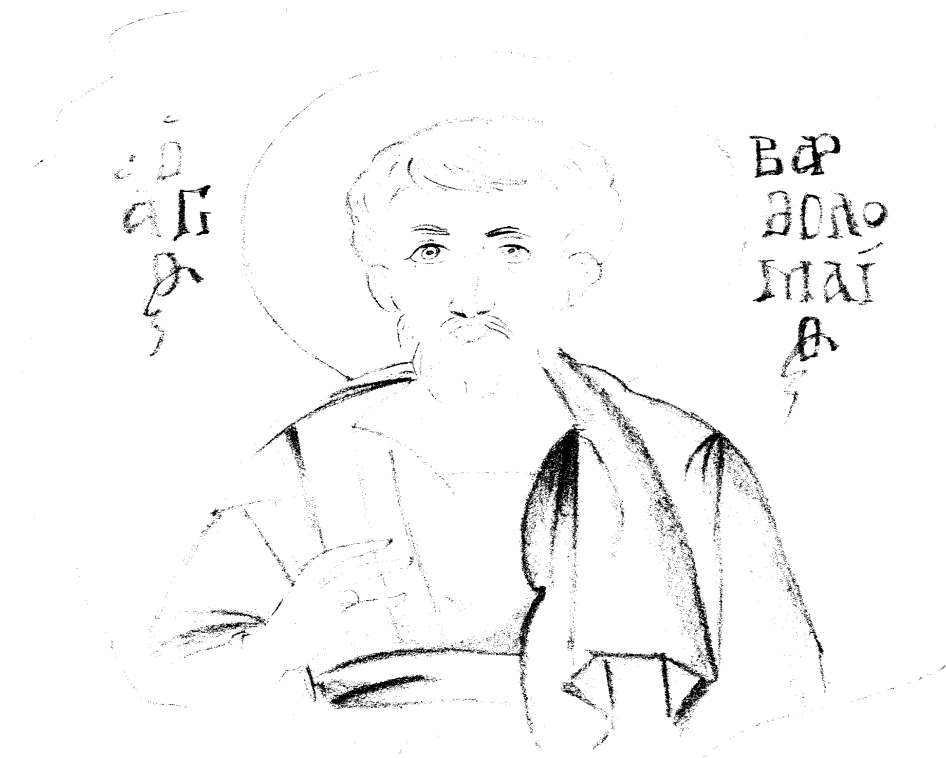 Ὁ
ἅΓΙ
ος
Βαρ
θολο
μαί
ος